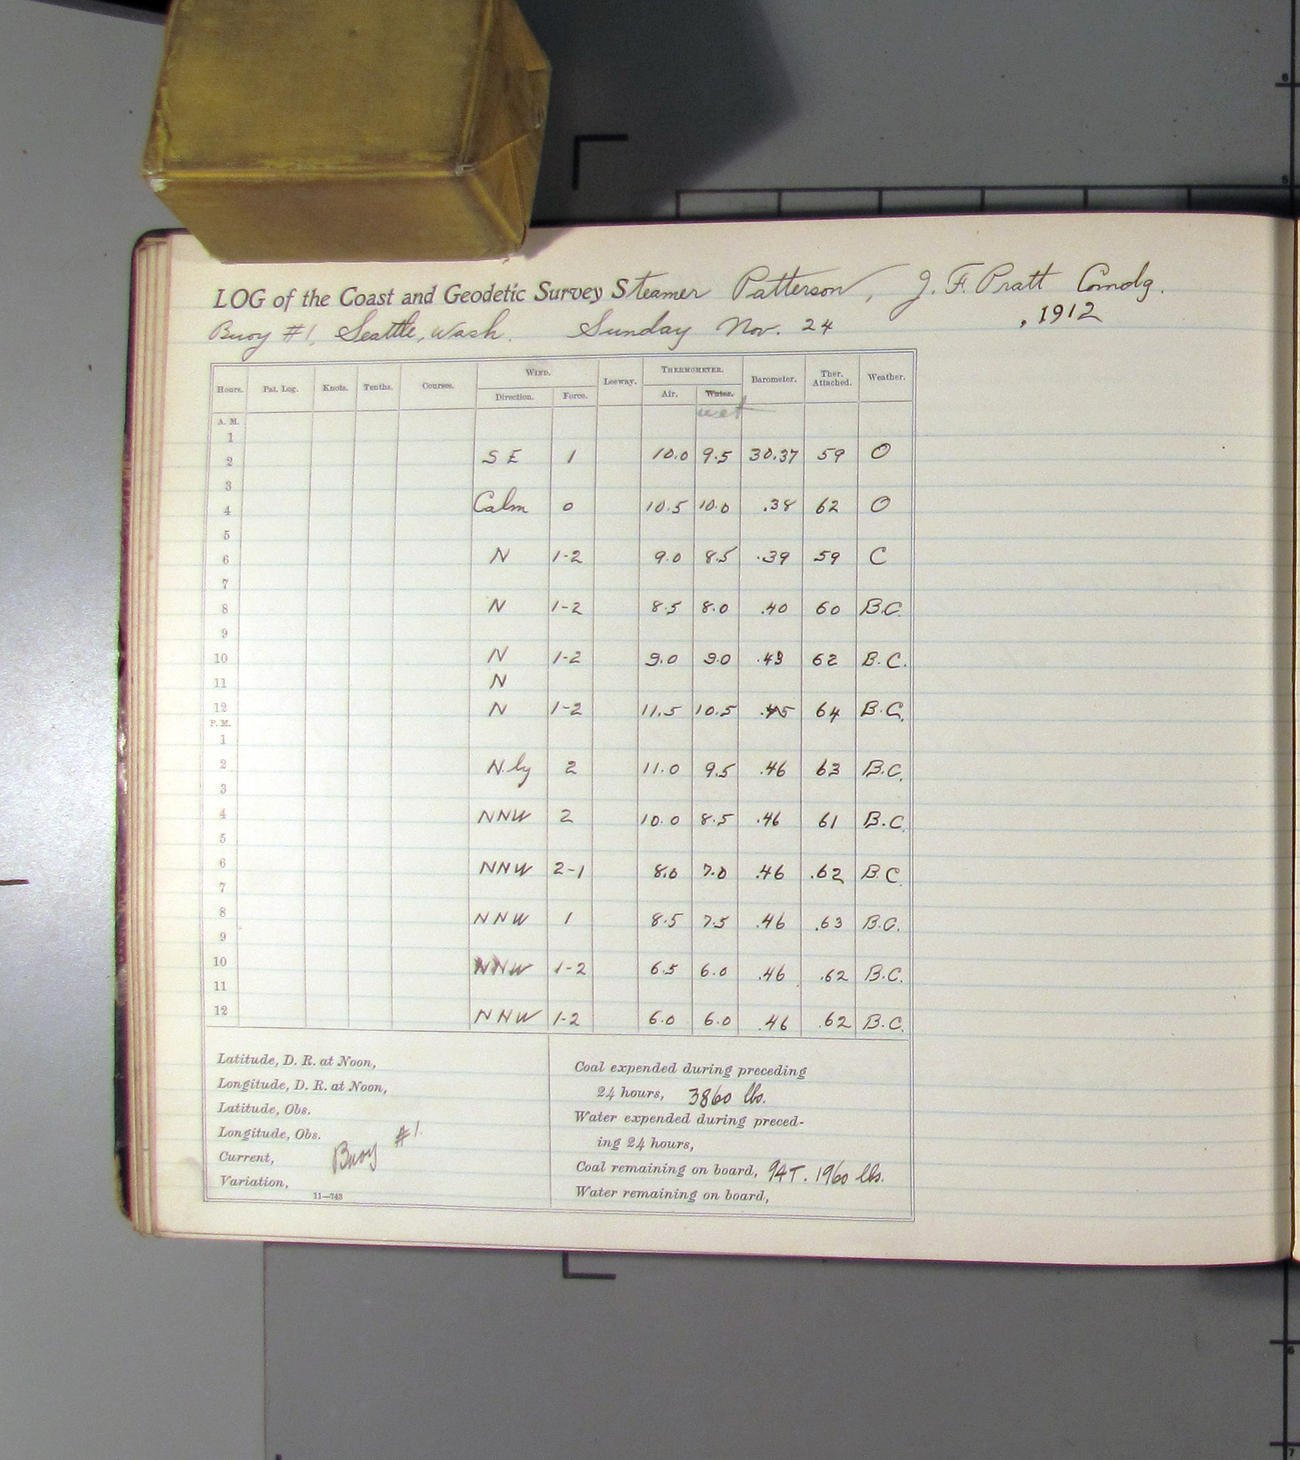 LOG of the Coast and Geodetic Survey Steamer Patterson, J. F. Pratt Comdg.
Buoy #1, Seattle, Wash. Sunday Nov. 24, 1912
Hours. Pat. Log. Knots. Tenths. Courses. WIND. Leeway. THERMOMETER. Barometer. Ther. Attached. Weather.
Direction. Force. Air. Water.
wet
A. M.
1
2 S E 1 10.0 9.5 30.37 59 O
3
4 Calm 0 10.5 10.0 .38 62 O
5
6 N 1-2 9.0 8.5 .39 59 C
7
8 N 1-2 8.5 8.0 .40 60 B.C.
9
10 N 1-2 9.0 9.0 .43 62 B.C.
11 N
12 N 1-2 11.5 10.5 .45 64 B.C.
P. M.
1
2 N.ly 2 11.0 9.5 .46 63 B.C.
3
4 NNW 2 10.0 8.5 .46 61 B.C.
5
6 NNW 2-1 8.0 7.0 .46 .62 B.C.
7
8 NNW 1 8.5 7.5 .46 .63 B.C.
9
10 NNW 1-2 6.5 6.0 .46 .62 B.C.
11
12 NNW 1-2 6.0 6.0 .46 .62 B.C.
Latitude, D. R. at Noon,
Longitude, D. R. at Noon,
Latitude, Obs.
Longitude, Obs.
Current, Buoy #1.
Variation,
11—743
Coal expended during preceding
24 hours, 3860 lbs.
Water expended during preced-
ing 24 hours,
Coal remaining on board, 94T. 1960 lbs.
Water remaining on board,